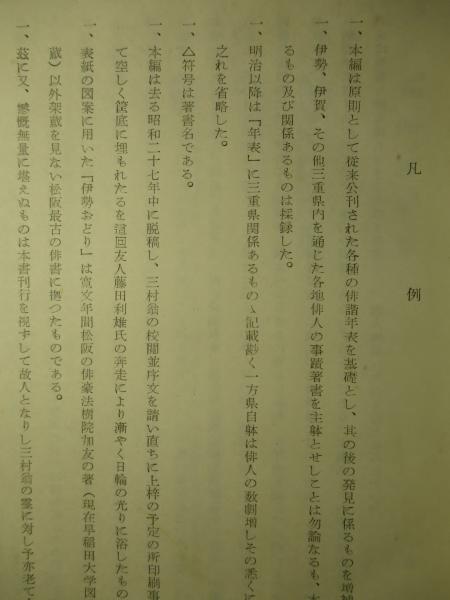 凡例
一、本編は原則として従来公刊された各種の俳諧年表を基礎とし、其の後の発見に係るものを増補
一、伊勢、伊賀、その他三重県内を通じた各地俳人の事蹟著書を主躰とせしことは勿論なるも、本
るもの及び関係あるものは採録した。
一、明治以降は「年表」に三重県関係あるものゝ記載尠く一方県自躰は俳人の数劇増しその悉くに
之れを省略した。
一、△符号は著書名である。
一、本編は去る昭和二十七年中に脱稿し、三村翁の校閲並序文を請い直ちに上梓の予定の所印刷事
て空しく筐底に埋もれたるを這回友人藤田利雄氏の奔走により漸やく日輪の光りに浴したもの
一、表紙の図案に用いた「伊勢おどり」は寛文年間松阪の俳豪法樹院加友の著(現在早稲田大学図
蔵)以外架蔵を見ない松阪最古の俳書に拠つたものである。
一、茲に又、感慨無量に堪えぬものは本書刊行を視ずして故人となりし三村翁の霊に対し予亦老て